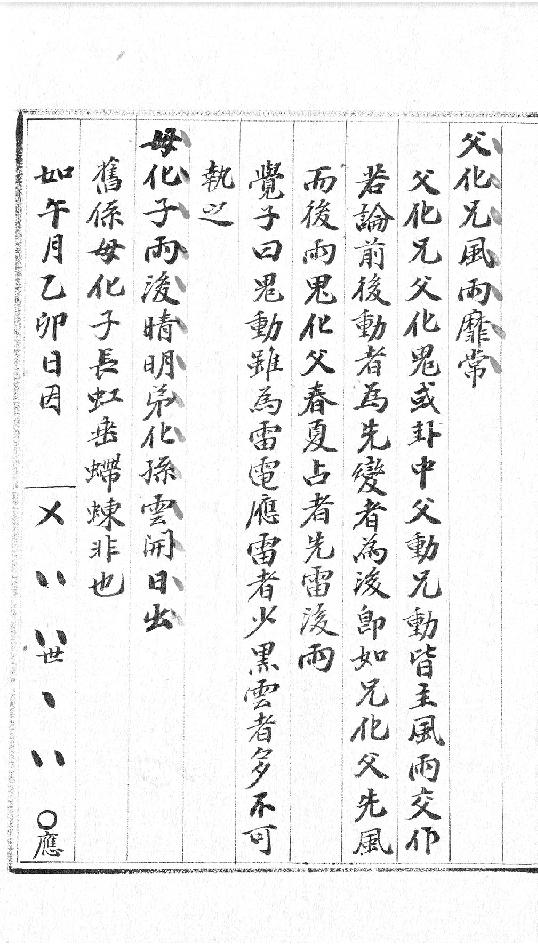 父化兄風雨靡常
父化兄父化鬼或卦中父動兄動皆主風雨交作
若論前後動者爲先變者為後即如兄化父先風
而後雨鬼化父春夏占者先雷後雨
覺子曰鬼動雖為雷電應雷者少黑雲者多不可
執之
母化子雨後晴明弟化孫雲開日出
舊係母化子長虹垂螮蝀非也
如午月乙卯日因
乂 〵〵 〵〵世 〵 〵〵 〇應